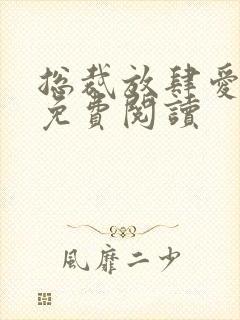 総裁放肆愛
免費閱讀
風靡二少